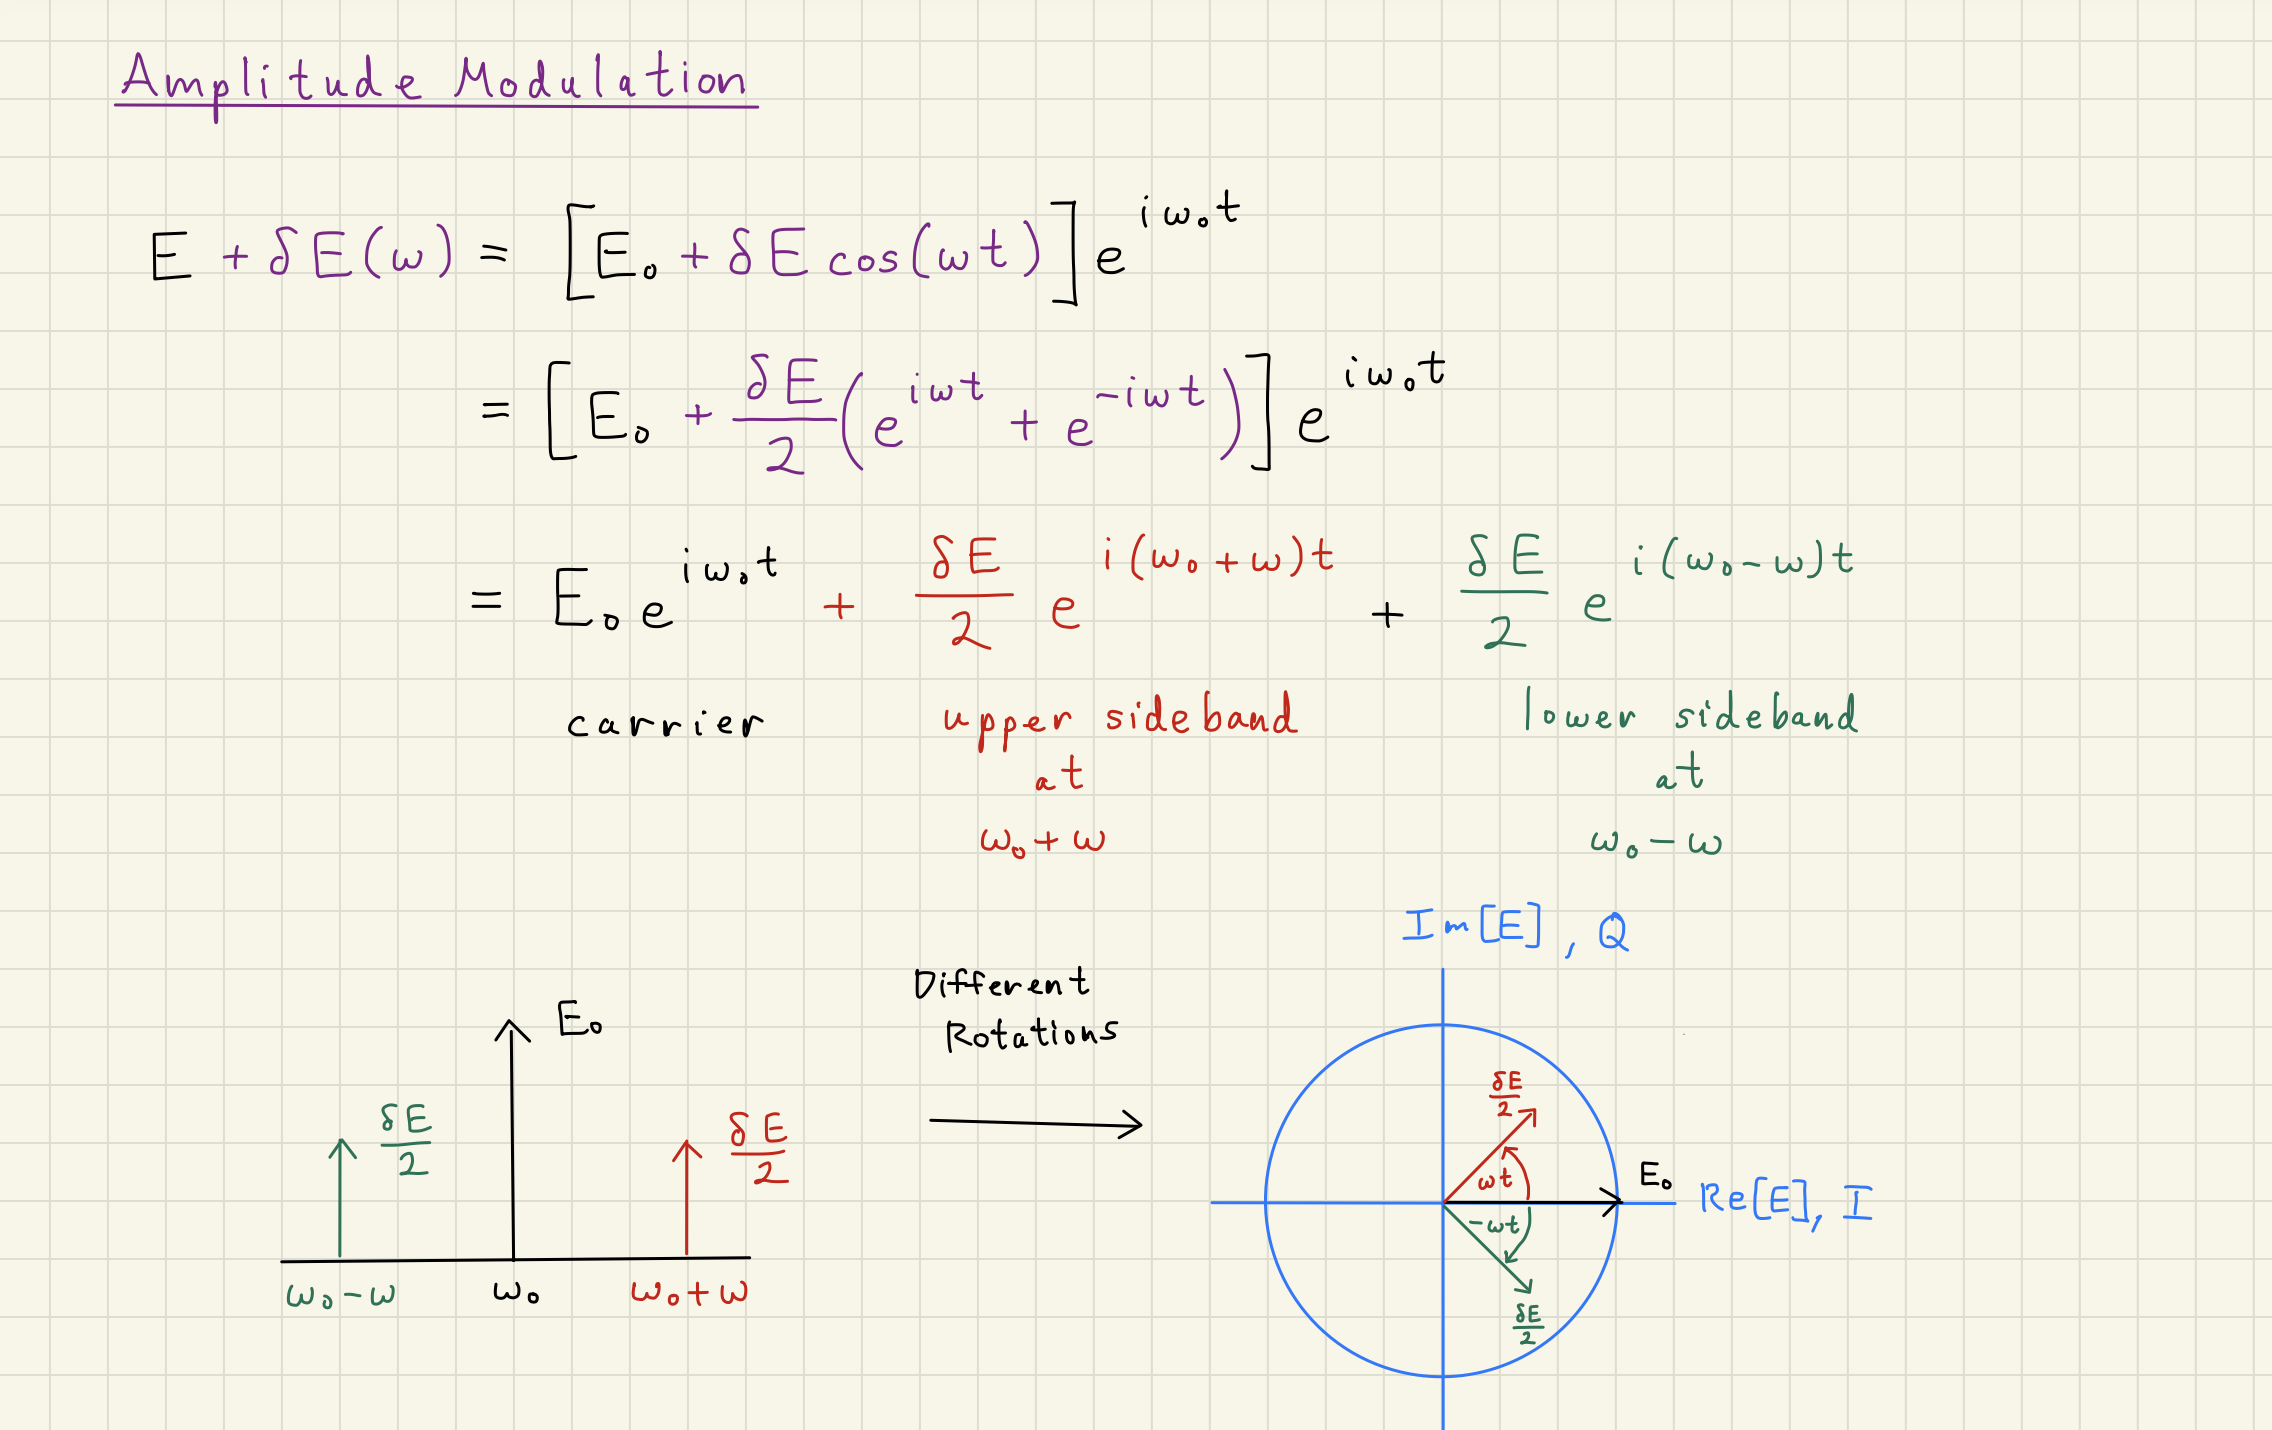 Amplitude Modulation
E + δE(ω) = [E₀ + δE cos(ωt)] e^{iω₀t}
= [E₀ + δE/2 (e^{iωt} + e^{-iωt})] e^{iω₀t}
= E₀ e^{iω₀t} + δE/2 e^{i(ω₀+ω)t} + δE/2 e^{i(ω₀-ω)t}
carrier
upper sideband
at
ω₀ + ω
lower sideband
at
ω₀ - ω
E₀
δE/2
δE/2
ω₀ - ω
ω₀
ω₀ + ω
Different
Rotations
Im[E], Q
δE/2
ωt
E₀
Re[E], I
-ωt
δE/2